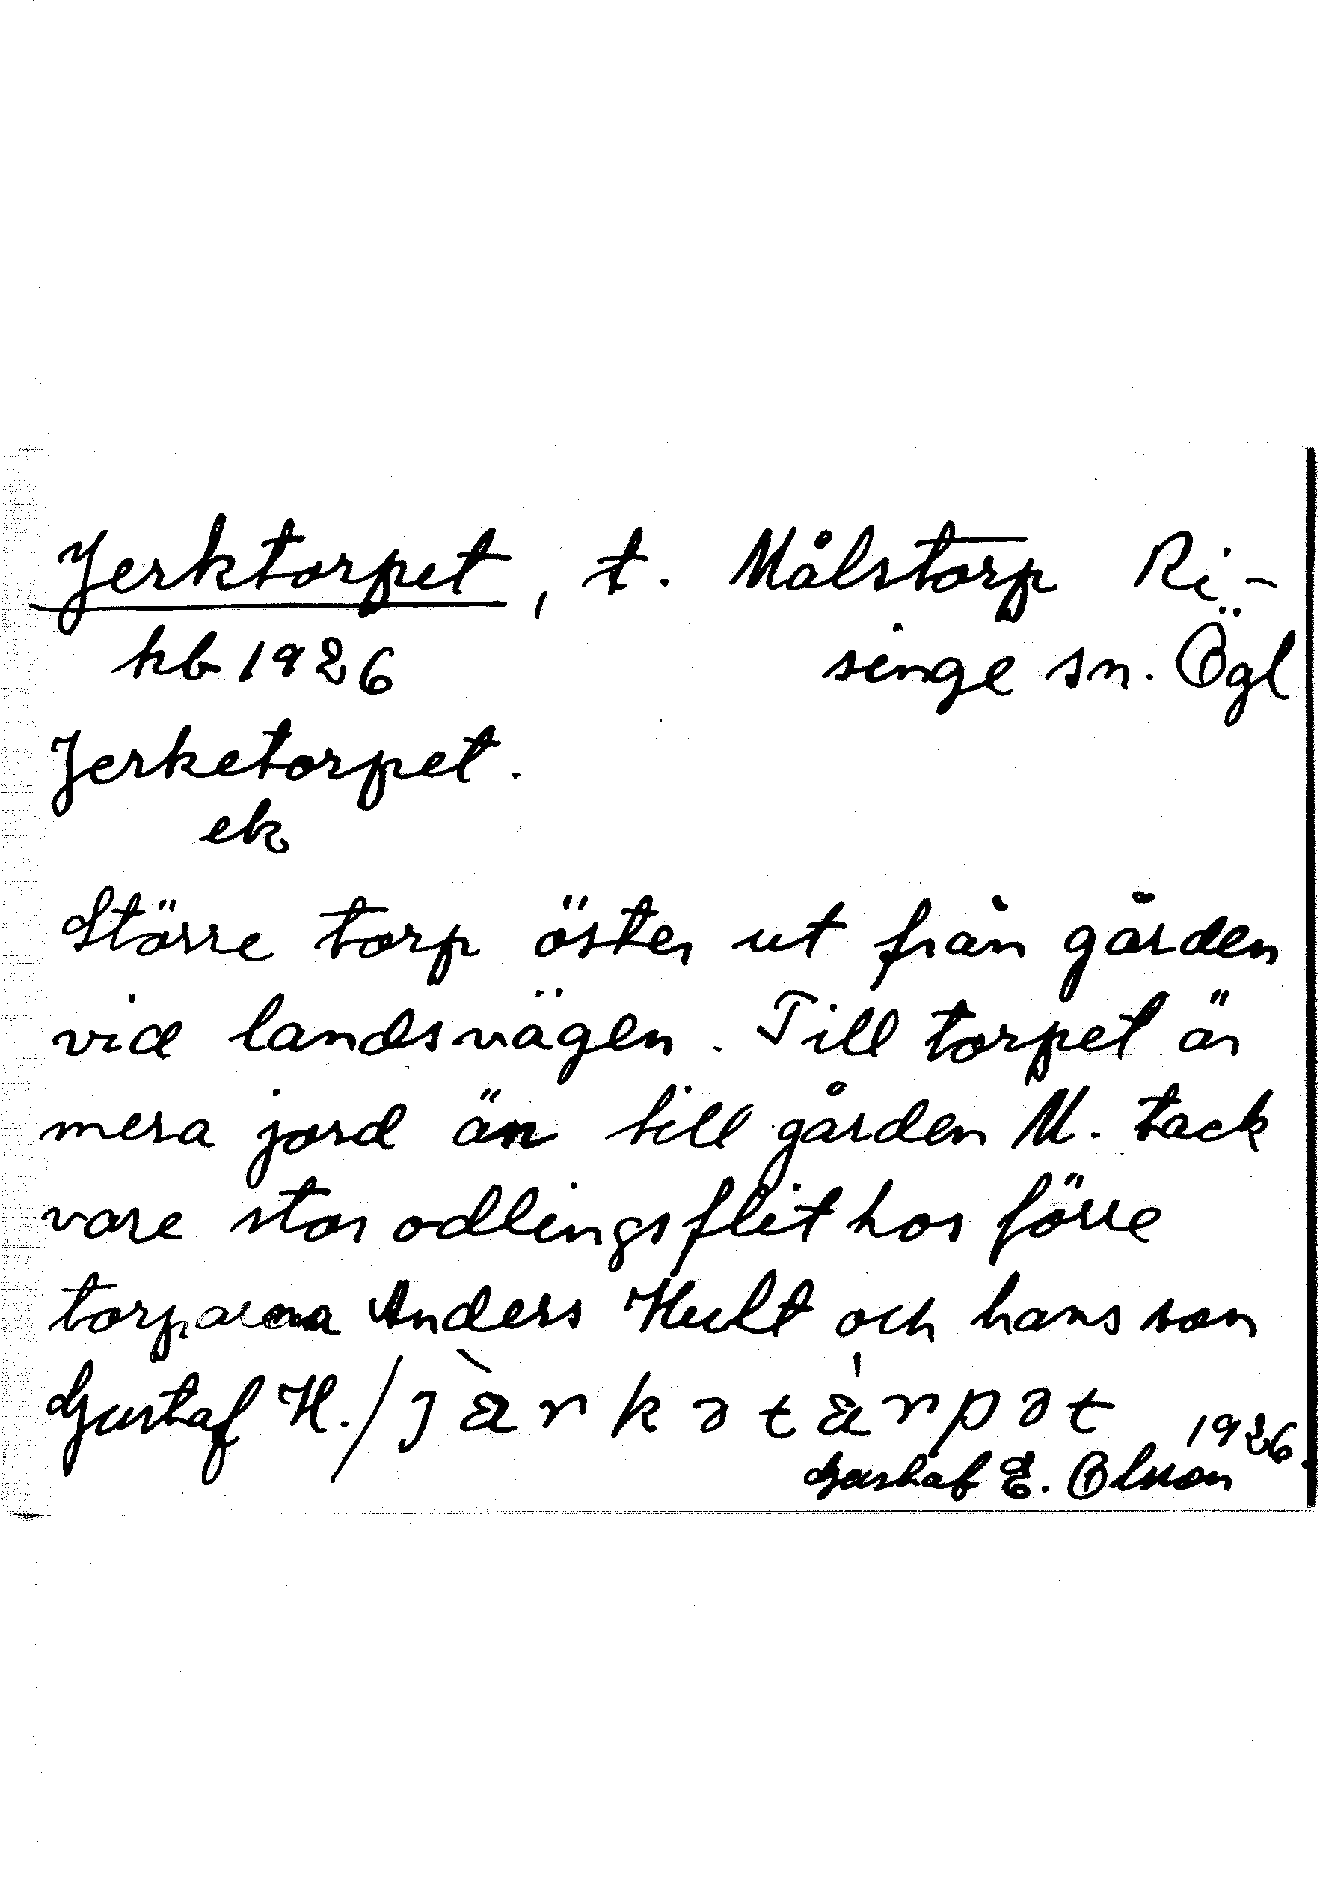 Jerktorpet, t. Målstorp Ri-
kb 1926 singe sn. Ögl
Jerketorpet.
ek
Större torp öster ut från gården
vid landsvägen. Till torpet är
mera jord än till gården M. tack
vare stor odlingsflit hos förre
torparna Anders Hult och hans son
Gustaf H./ jàrkətårpət 1926.
Gustaf E. Olsson